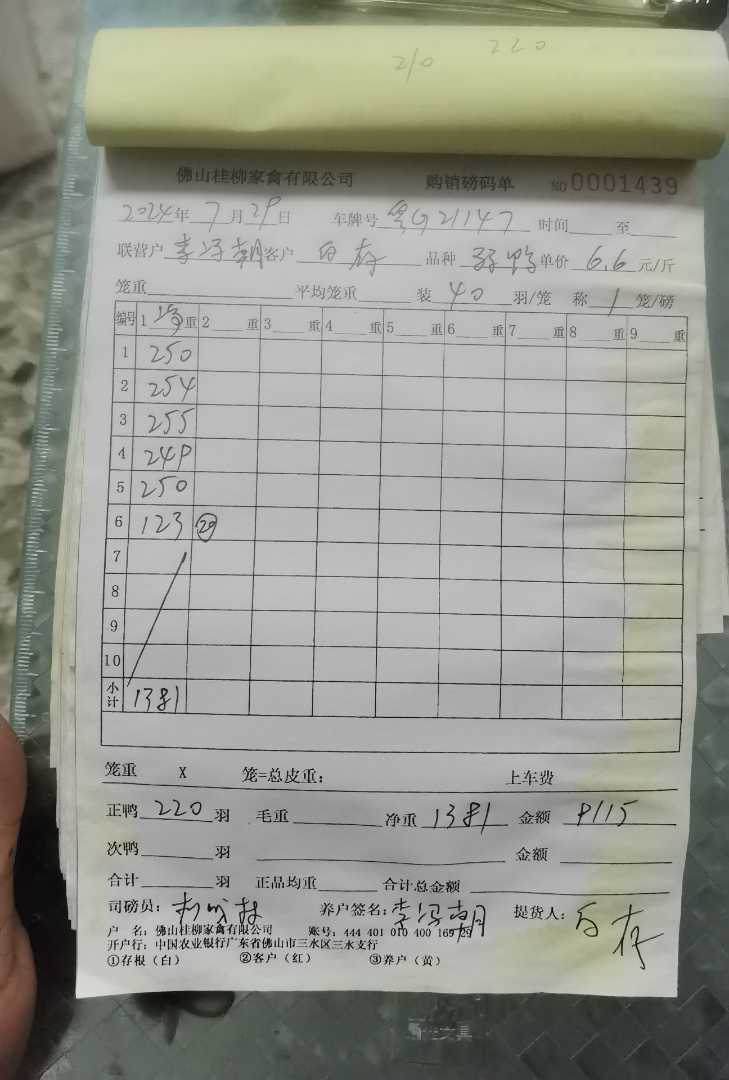 210 220
佛山桂柳家禽有限公司 购销磅码单 NO 0001439
2024年 7月 29日 车牌号 粤G21147 时间 至
联营户 李 朝 客户 白存 品种 鸭 单价 6.6 元/斤
笼重 平均笼重 装 40 羽/笼 称 1 笼/磅
编号 1 净 重 2 重 3 重 4 重 5 重 6 重 7 重 8 重 9 重
1 250
2 254
3 255
4 249
5 250
6 123 20
7
8
9
10
小计 1381
笼重 X 笼=总皮重: 上车费
正鸭 220 羽 毛重 净重 1381 金额 9115
次鸭 羽 金额
合计 羽 正品均重 合计总金额
司磅员: 养户签名: 李 朝 提货人: 白存
户 名: 佛山桂柳家禽有限公司 账号: 444 401 010 400 169 29
开户行: 中国农业银行广东省佛山市三水区三水支行
①存根(白) ②客户(红) ③养户(黄)